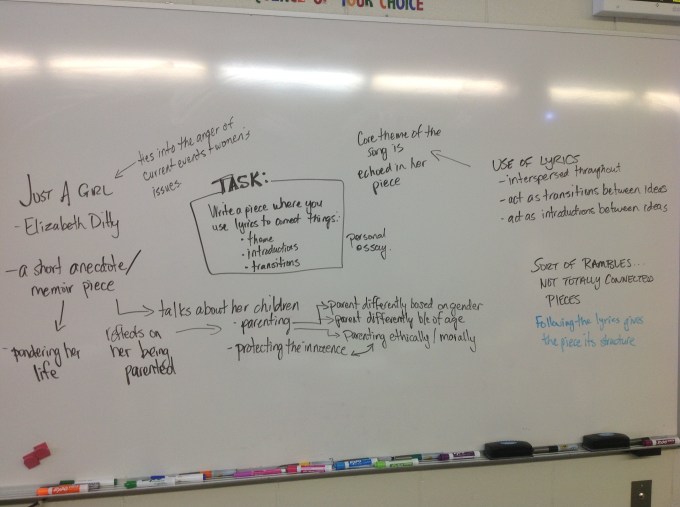 OF YOUR CHOICE
ties into the anger of
current events + women's
issues
JUST A GIRL
- Elizabeth Ditty
- a short anecdote/
memoir piece
- pondering her
life
reflects on
her being
parented
TASK:
Write a piece where you
use lyrics to connect things:
• theme
• introductions
• transitions
personal
essay.
talks about her children
- parenting
parent differently based on gender
parent differently b/c of age
Parenting ethically / morally
- protecting the innocence
Core theme of the
song is
echoed in her
piece
USE OF LYRICS
- interspersed throughout
- act as transitions between ideas
- act as introductions between ideas
SORT OF RAMBLES...
NOT TOTALLY CONNECTED
PIECES
Following the lyrics gives
the piece its structure